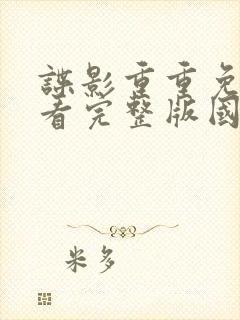 諜影重重免
看完整版國
米多